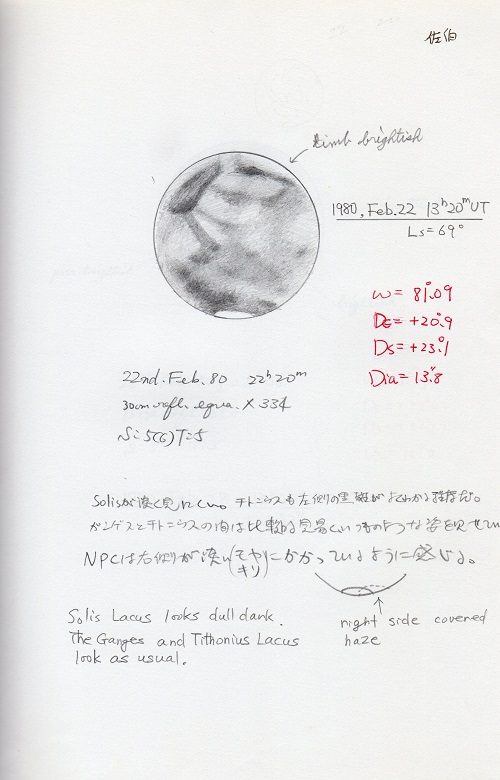 佐伯
Limb brightish
1980, Feb. 22 13ʰ20ᵐ UT
Ls=69°
ω= 81°.09
DE= +20°.9
Ds= +23°.1
Dia= 13".8
22nd. Feb. 80 22ʰ20ᵐ
30cm refl. equa. X 334
S=5(6) T=5
Solisが淡く見にくい。チトニウスも左側の黒斑がよくわかる程度だ。
ガンゲスとチトニウスの
NPCは右側が淡い(モヤ キリ)にかかっているように感じる。
Solis Lacus looks dull dark.
The Ganges and Tithonius Lacus
look as usual.
right side covered
haze